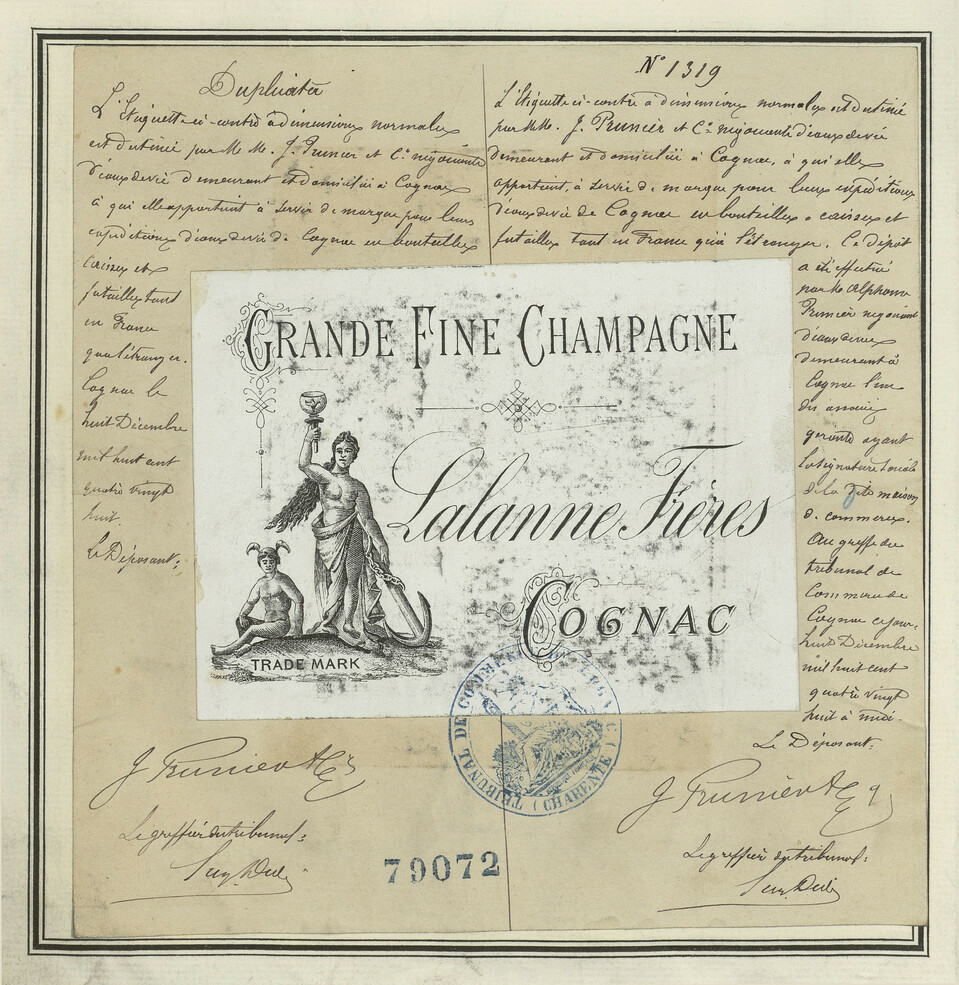 Duplicata
L'Etiquette ci-contre à dimensions normales
est destiné par MM. J. Prunier et Cie négociants
d'eaux de vie demeurant et domiciliés à Cognac
à qui elle appartient à servir de marque pour leurs
expéditions d'eaux de vie de Cognac en bouteilles
caisses et
futailles tant
en France
qu'à l'étranger.
Cognac le
huit Décembre
mil huit cent
quatre vingt
huit.
Le Déposant:
J Prunier & Cie
Le greffier du tribunal:
N° 1319
L'Etiquette ci-contre à dimensions normales est destiné
par MM. J. Prunier et Cie négociants d'eaux de vie
demeurant et domiciliés à Cognac, à qui elle
appartient, à servir de marque pour leurs expéditions
d'eaux de vie de Cognac en bouteilles caisses et
futailles tant en France qu'à l'étranger. Ce dépôt
a été effectué
par M. Alphonse
Prunier négociant
d'eaux de vie
demeurant à
Cognac l'un
des associés
gérants ayant
la signature sociale
de la dite maison
de commerce.
Au greffe du
tribunal de
Commerce de
Cognac ce jour:
huit Décembre
mil huit cent
quatre vingt
huit à midi.
Le Déposant:
J Prunier & Cie
Le greffier du tribunal:
GRANDE FINE CHAMPAGNE
Lalanne Frères
COGNAC
TRADE MARK
TRIBUNAL DE COMMERCE DE COGNAC (CHARENTE)
79072